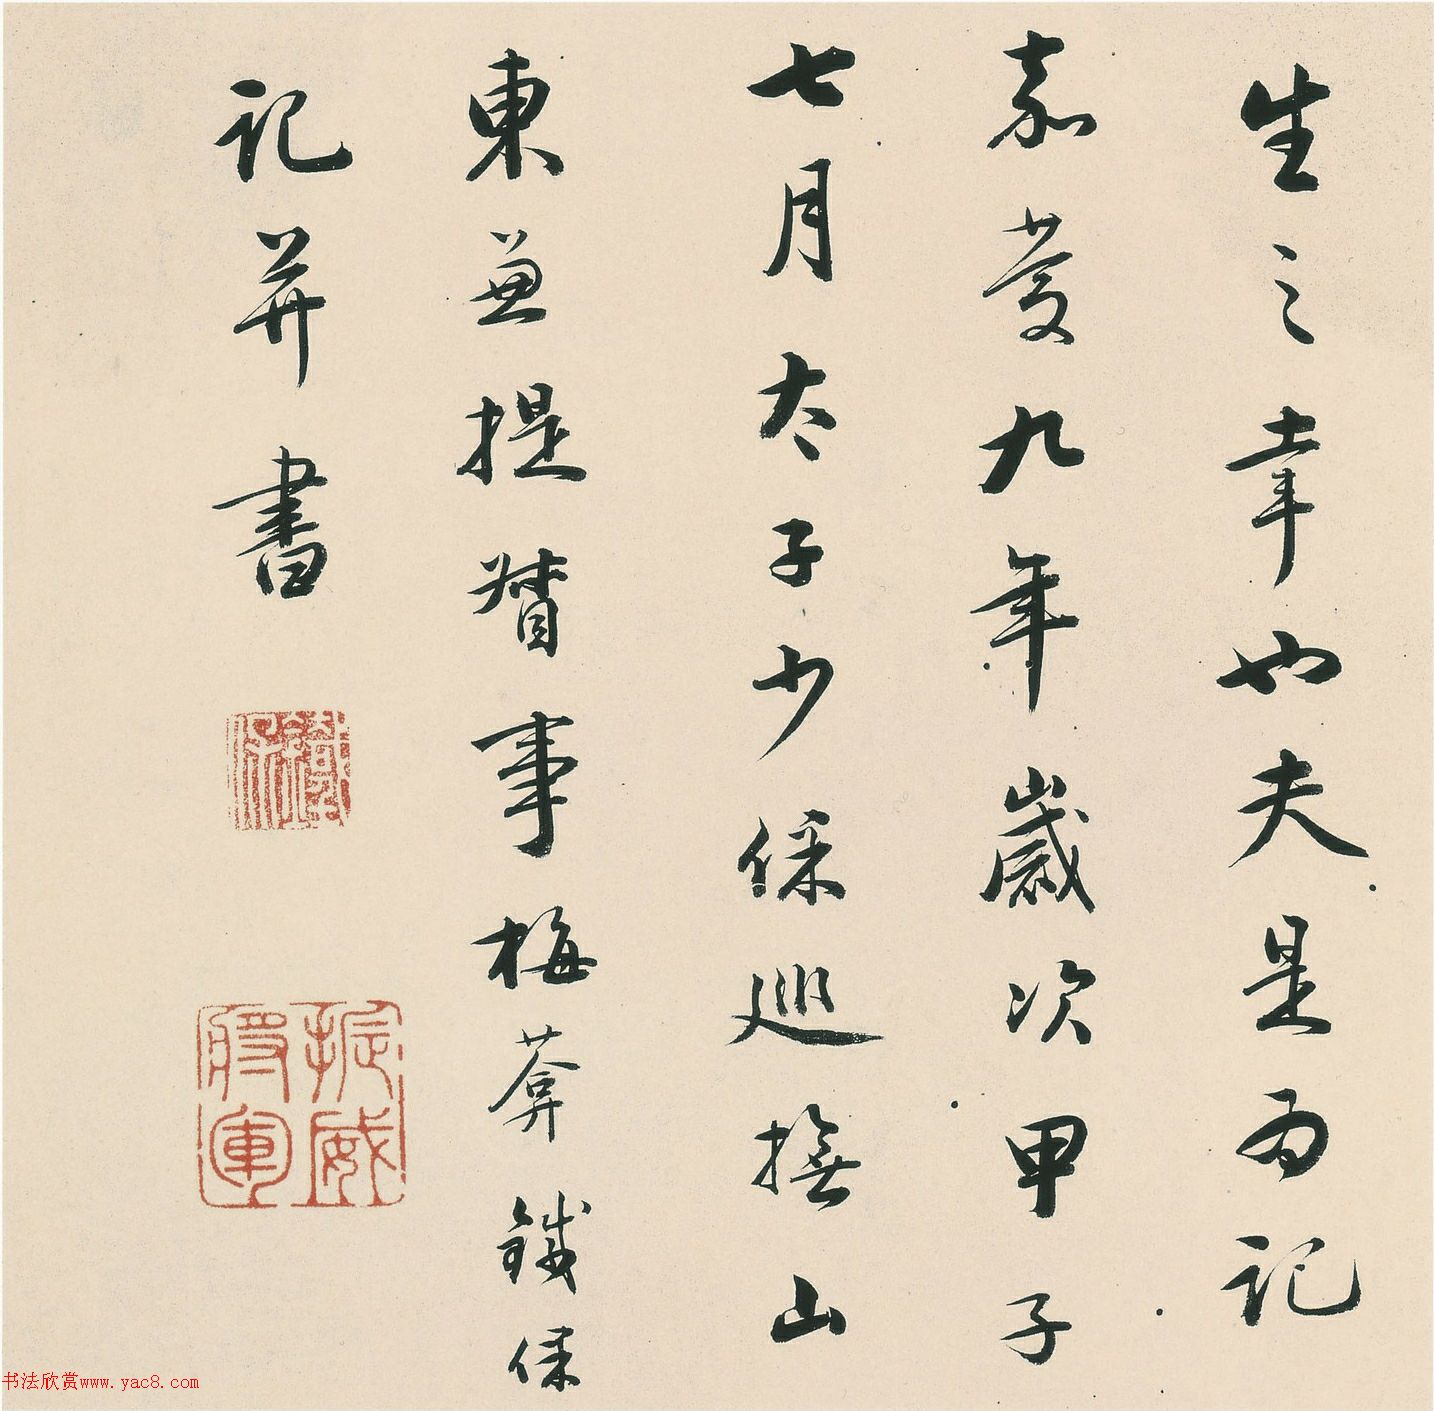 生之幸也夫是为记
嘉慶九年歲次甲子
七月太子少保巡撫山
東兼提督事梅葊鐵保
記并書
鐵保
振威將軍
书法欣赏www.yac8.com